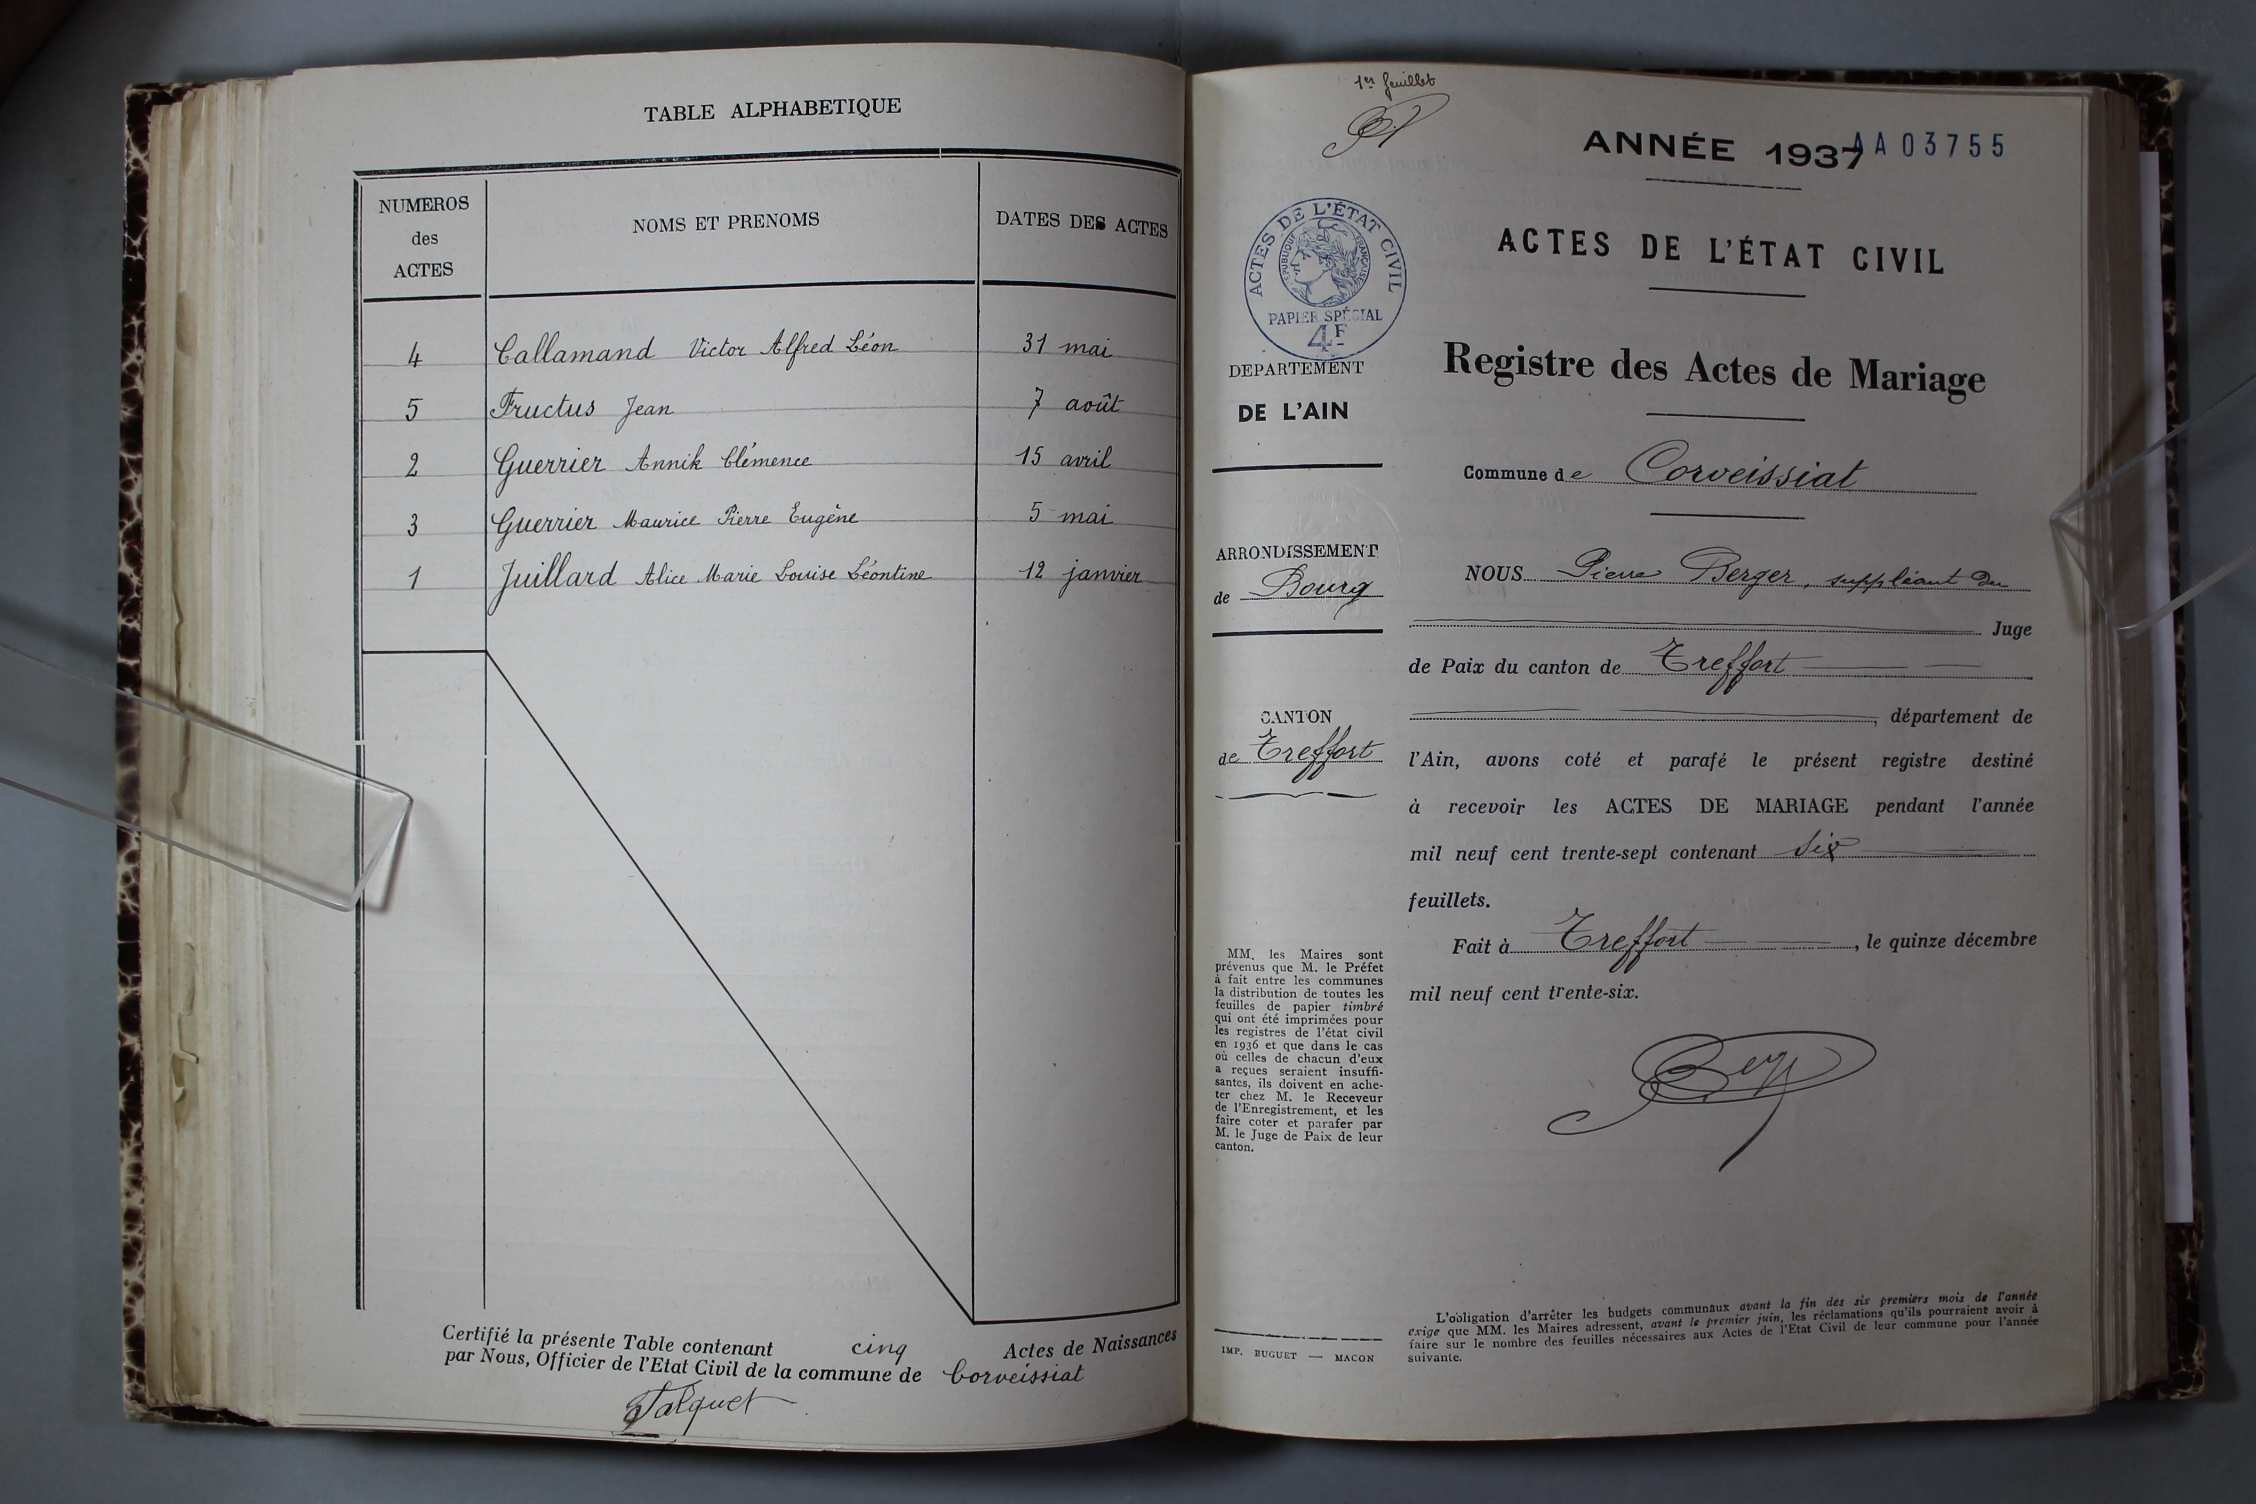 TABLE ALPHABETIQUE
NUMEROS
des
ACTES
NOMS ET PRENOMS
DATES DES ACTES
4 Callamand Victor Alfred Léon 31 mai
5 Fructus Jean 7 août
2 Guerrier Annik Clémence 15 avril
3 Guerrier Maurice Pierre Eugène 5 mai
1 Juillard Alice Marie Louise Léontine 12 janvier
Certifié la présente Table contenant cinq Actes de Naissances
par Nous, Officier de l'Etat Civil de la commune de Corveissiat
1er feuillet
ANNÉE 1937
AA03755
ACTES DE L'ÉTAT CIVIL
RÉPUBLIQUE FRANÇAISE
PAPIER SPÉCIAL
4F
DEPARTEMENT
DE L'AIN
ARRONDISSEMENT
de Bourg
CANTON
de Treffort
MM. les Maires sont
prévenus que M. le Préfet
à fait entre les communes
la distribution de toutes les
feuilles de papier timbré
qui ont été imprimées pour
les registres de l'état civil
en 1936 et que dans le cas
où celles de chacun d'eux
a reçues seraient insuffi-
santes, ils doivent en ache-
ter chez M. le Receveur
de l'Enregistrement, et les
faire coter et parafer par
M. le Juge de Paix de leur
canton.
IMP. BUGUET — MACON
ACTES DE L'ÉTAT CIVIL
Registre des Actes de Mariage
Commune de Corveissiat
NOUS Pierre Berger, suppléant du
Juge
de Paix du canton de Treffort
, département de
l'Ain, avons coté et parafé le présent registre destiné
à recevoir les ACTES DE MARIAGE pendant l'année
mil neuf cent trente-sept contenant six
feuillets.
Fait à Treffort, le quinze décembre
mil neuf cent trente-six.
L'obligation d'arrêter les budgets communaux avant la fin des six premiers mois de l'année
exige que MM. les Maires adressent, avant le premier juin, les réclamations qu'ils pourraient avoir à
faire sur le nombre des feuilles nécessaires aux Actes de l'Etat Civil de leur commune pour l'année
suivante.